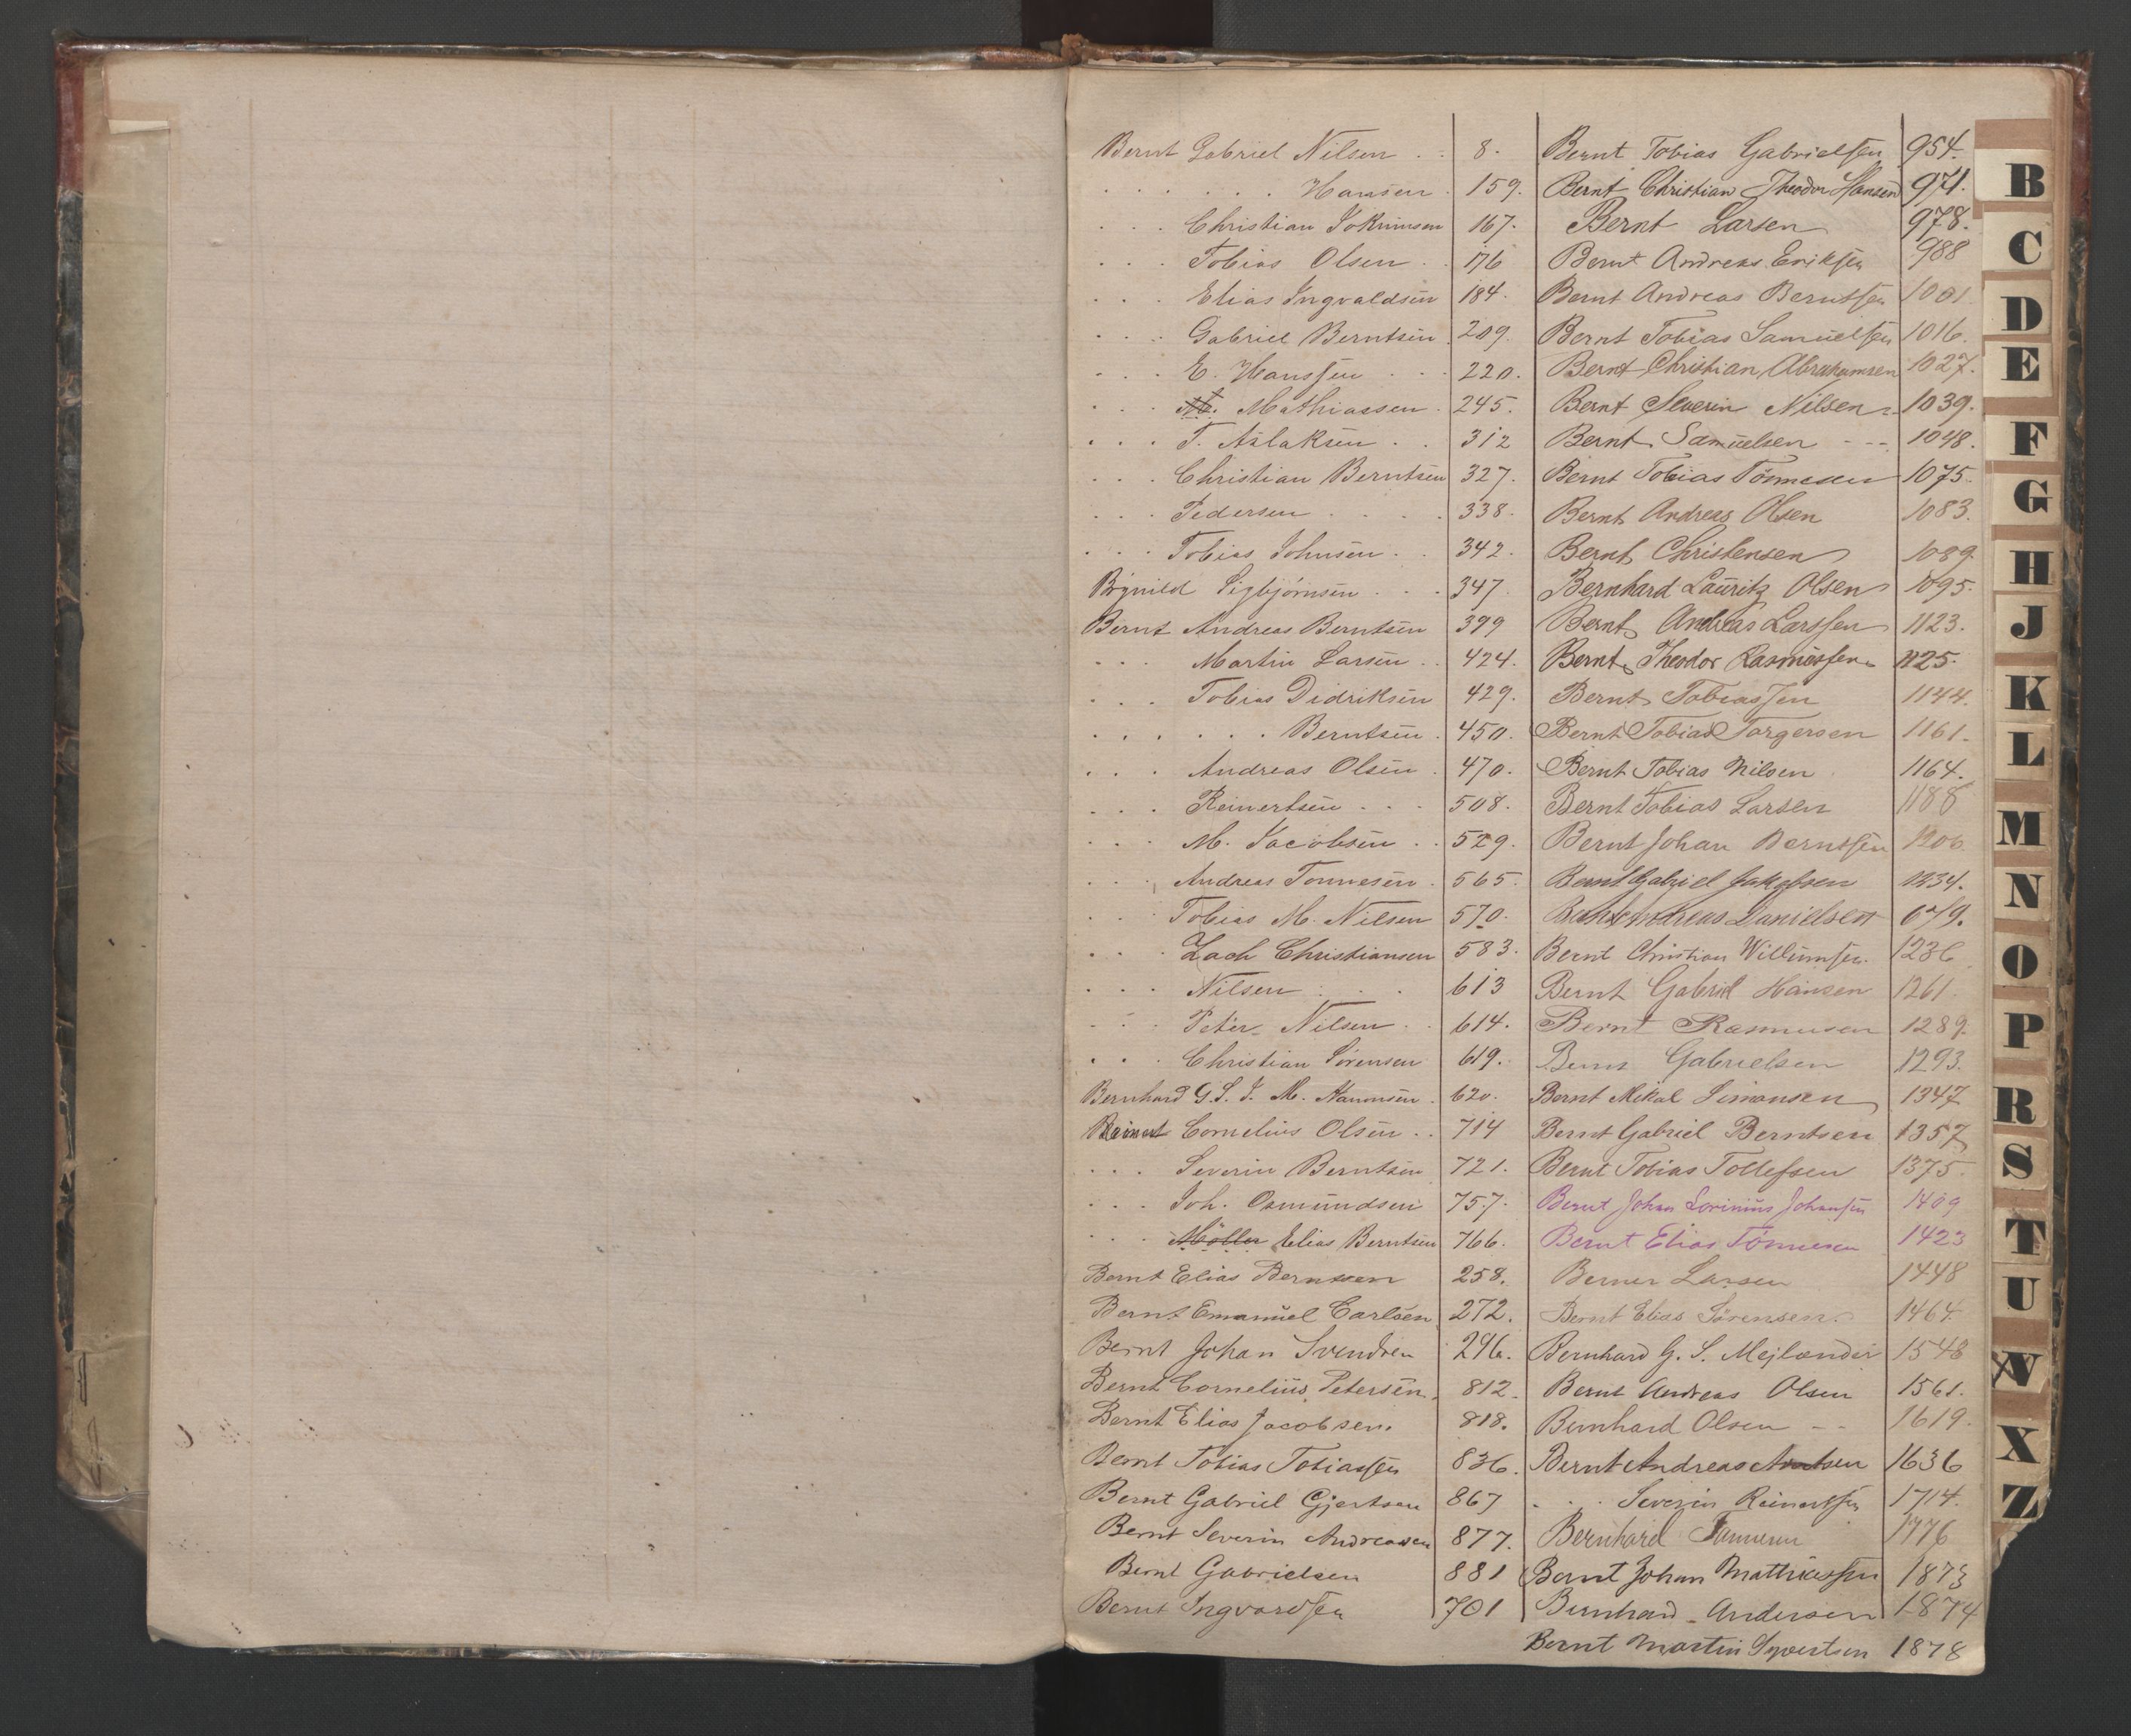 Bernt Gabriel Nilsen . . 8.
. . . . . . Hansen . 159.
. . . Christian Jokumsen 167.
. . . Tobias Olsen . . 176
. . . Elias Ingvaldsen 184.
. . . Gabriel Berntsen 209.
. . . E. Hanssen . . . 220.
. . . M. Mathiassen . 245.
. . . T. Aslaksen . . 312
. . . Christian Berntsen 327.
. . . Pedersen . . . . 338.
. . . Tobias Johnsen . . 342.
Brynild Sigbjørnsen . . . 347.
Bernt Andreas Berntsen 399
. . . Martin Larsen . . 424.
. . . Tobias Didriksen 429.
. . . . . . Berntsen . 450.
. . . Andreas Olsen . 470.
. . . Reinertsen . . . 508.
. . . M. Jacobsen . . 529.
. . . Andreas Tonnesen . 565.
. . . Tobias M. Nilsen 570.
. . . Zach Christiansen 583.
. . . Nilsen . . . 613
. . . Peter Nilsen . . 614.
. . . Christian Sørensen 619.
Bernhard G. S. J. M. Hanonsen . 620.
Cornelius Olsen . . 714
. . . Severin Berntsen 721.
. . . Joh. Osmundsen 757.
. . . Möller Elias Berntsen 766.
Bernt Elias Berntsen 258.
Bernt Emanuel Carlsen 272.
Bernt Johan Svendsen 296.
Bernt Cornelius Petersen. 812.
Bernt Elias Jacobsen. 818.
Bernt Tobias Tobiassen 836.
Bernt Gabriel Gjertsen 867
Bernt Severin Andreassen 877.
Bernt Gabrielsen 881
Bernt Ingvardsen 701
Bernt Tobias Gabrielsen 954.
Bernt Christian Theodor Hansen 971.
Bernt Larsen 978.
Bernt Andreas Eriksen 988
Bernt Andreas Berntsen 1001
Bernt Tobias Samuelsen 1016.
Bernt Christian Abrahamsen 1027.
Bernt Severin Nilsen 1039.
Bernt Samuelsen - - - 1048.
Bernt Tobias Tönnesen 1075.
Bernt Andreas Olsen 1083.
Bernt Christensen 1089.
Bernhard Lauritz Olsen 1095.
Bernt Andreas Larssen 1123.
Bernt Theodor Rasmussen 1125.
Bernt Tobiassen 1144.
Bernt Tobias Torgersen 1161.
Bernt Tobias Nilsen 1164.
Bernt Tobias Larsen 1188
Bernt Johan Berntsen 1206
Bernt Gabriel Jakobsen 1234.
Bernt Andreas Danielsen 679.
Bernt Christian Willumsen. 1236
Bernt Gabriel Hansen 1261.
Bernt Rasmusen 1289.
Bernt Gabrielsen 1293.
Bernt Mikal Simonsen 1347
Bernt Gabriel Berntsen 1357
Bernt Tobias Tollefsen 1375.
Bernt Johan Lorinius Johansen 1409
Bernt Elias Tönnesen 1423
Berner Larsen 1448
Bernt Elias Sörensen. 1464.
Bernhard G. S. Mejlænder 1543
Bernt Andreas Olsen 1561.
Bernhard Olsen - - 1619.
Bernt Andreas 1636
. . . Severin Reinertsen 1714.
Bernhard 1776
Bernt Johan Matthiassen 1873
Bernhard Andersen 1874
Bernt Martin Syvertsen 1878
B
C
D
E
F
G
H
J
K
L
M
N
O
P
R
S
T
U
W
X
Z